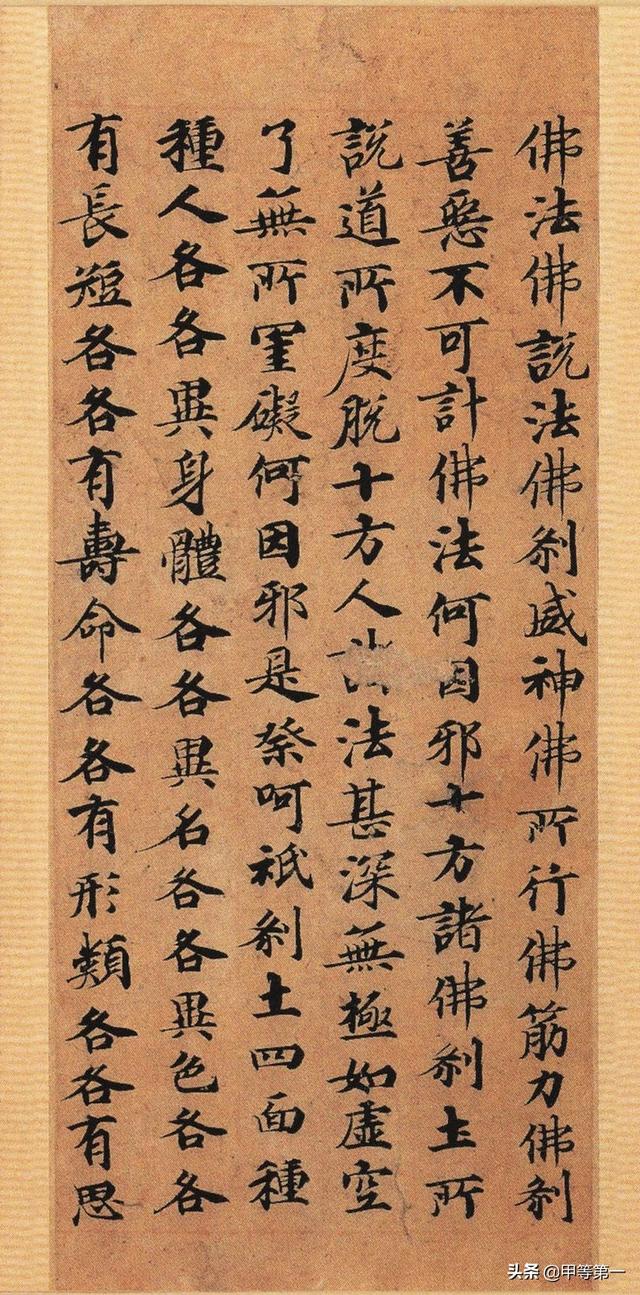 佛法佛說法佛剎威神佛所行佛筋力佛剎
善惡不可計佛法何因邪十方諸佛剎土所
說道所度脫十方人法甚深無極如虛空
了無所罣礙何因邪是祭呵祇剎土四面種
種人各各異身體各各異名各各異色各各
有長短各各有壽命各各有形類各各有思
头条 @甲等第一